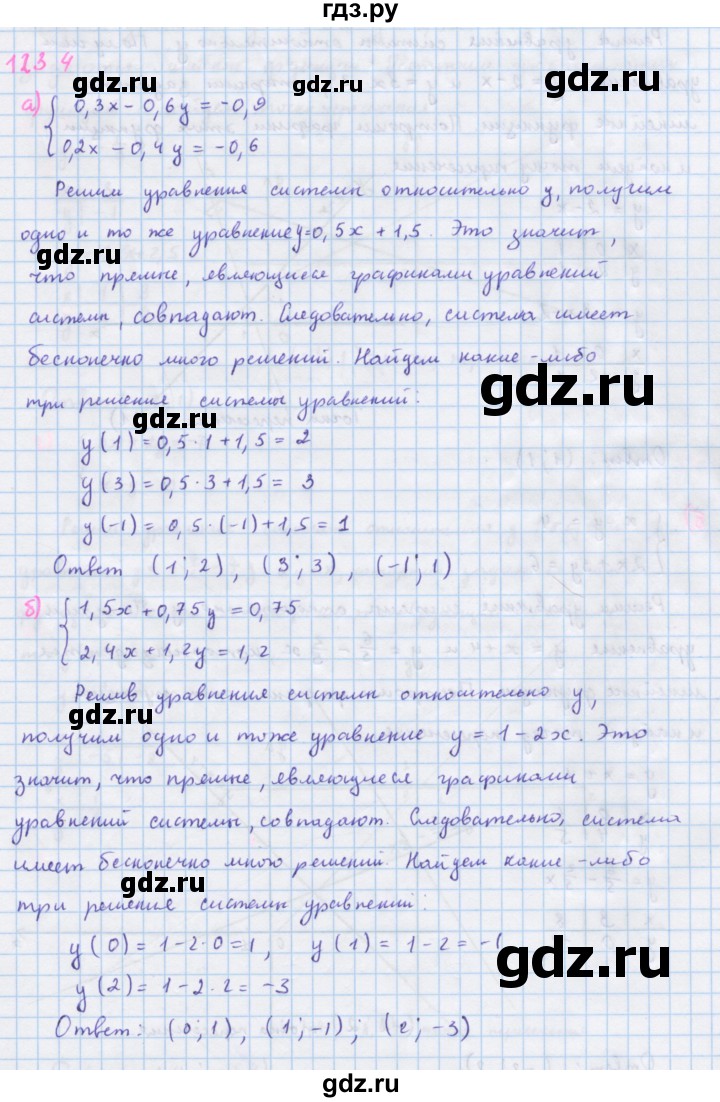 гдз.ру
1234
а) { 0,3x - 0,6y = -0,9
0,2x - 0,4y = -0,6
Решим уравнения системы относительно y, получим
одно и то же уравнение y=0,5x + 1,5. Это значит,
gdz.ru
что прямые, являющиеся графиками уравнений
gdz.ru
системы, совпадают. Следовательно, система имеет
бесконечно много решений. Найдем какие-либо
gdz.ru
три решения системы уравнений:
gdz.ru
y(1) = 0,5·1 + 1,5 = 2
y(3) = 0,5·3 + 1,5 = 3
y(-1) = 0,5·(-1) + 1,5 = 1
Ответ (1; 2), (3; 3), (-1; 1)
gdz.ru
б) { 1,5x + 0,75y = 0,75
2,4x + 1,2y = 1,2
Решив уравнения системы относительно y,
gdz.ru
получим одно и тоже уравнение y = 1 - 2x. Это
значит, что прямые, являющиеся графиками
уравнений системы, совпадают. Следовательно, система
имеет бесконечно много решений. Найдем какие-либо
gdz.ru
три решения системы уравнений:
y(0) = 1 - 2·0 = 1, y(1) = 1 - 2 = -1
gdz.ru
y(2) = 1 - 2·2 = -3
Ответ: (0; 1), (1; -1); (2; -3)
gdz.ru